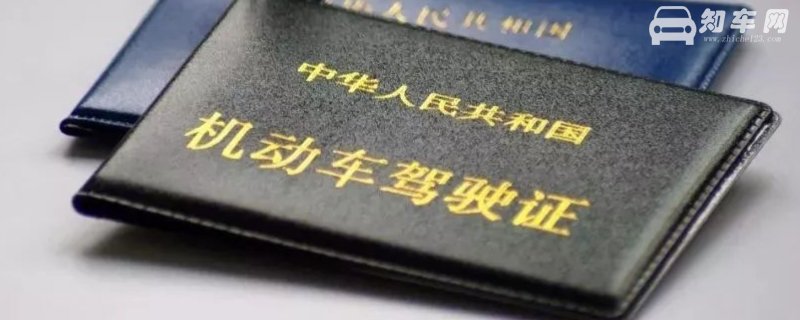 华人民共和国
知车网
www.zhiche123.com
中华人民共和国
机动车驾驶证